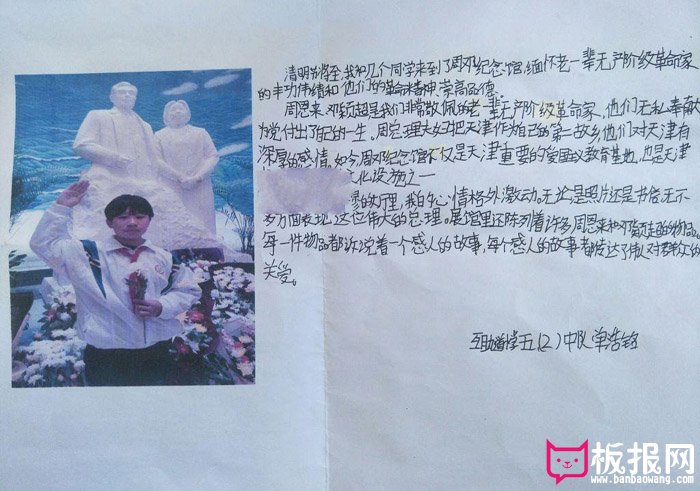 清明将至,我和几个同学来到了周邓纪念馆,缅怀老一辈无产阶级革命家
的丰功伟绩和他们的革命精神、崇高品德。
周恩来、邓颖超是我们非常敬佩的老一辈无产阶级革命家,他们无私奉献
为党付出了自己的一生。周总理夫妇把天津作为自己的第二故乡,他们对天津有
深厚的感情。如今周邓纪念馆不仅是天津重要的爱国主义教育基地,也是天津
文化设施之一
的敬理,我的心情格外激动。无论是照片还是书信无不
多方面表现这位伟大的总理。展馆里还陈列着许多周恩来和邓颖超的物品。
每一件物品都诉说着一个感人的故事,每个感人的故事都表达了伟人对群众的
关爱。
五(2)中队 单浩铭
板报网
www.banbaowang.com